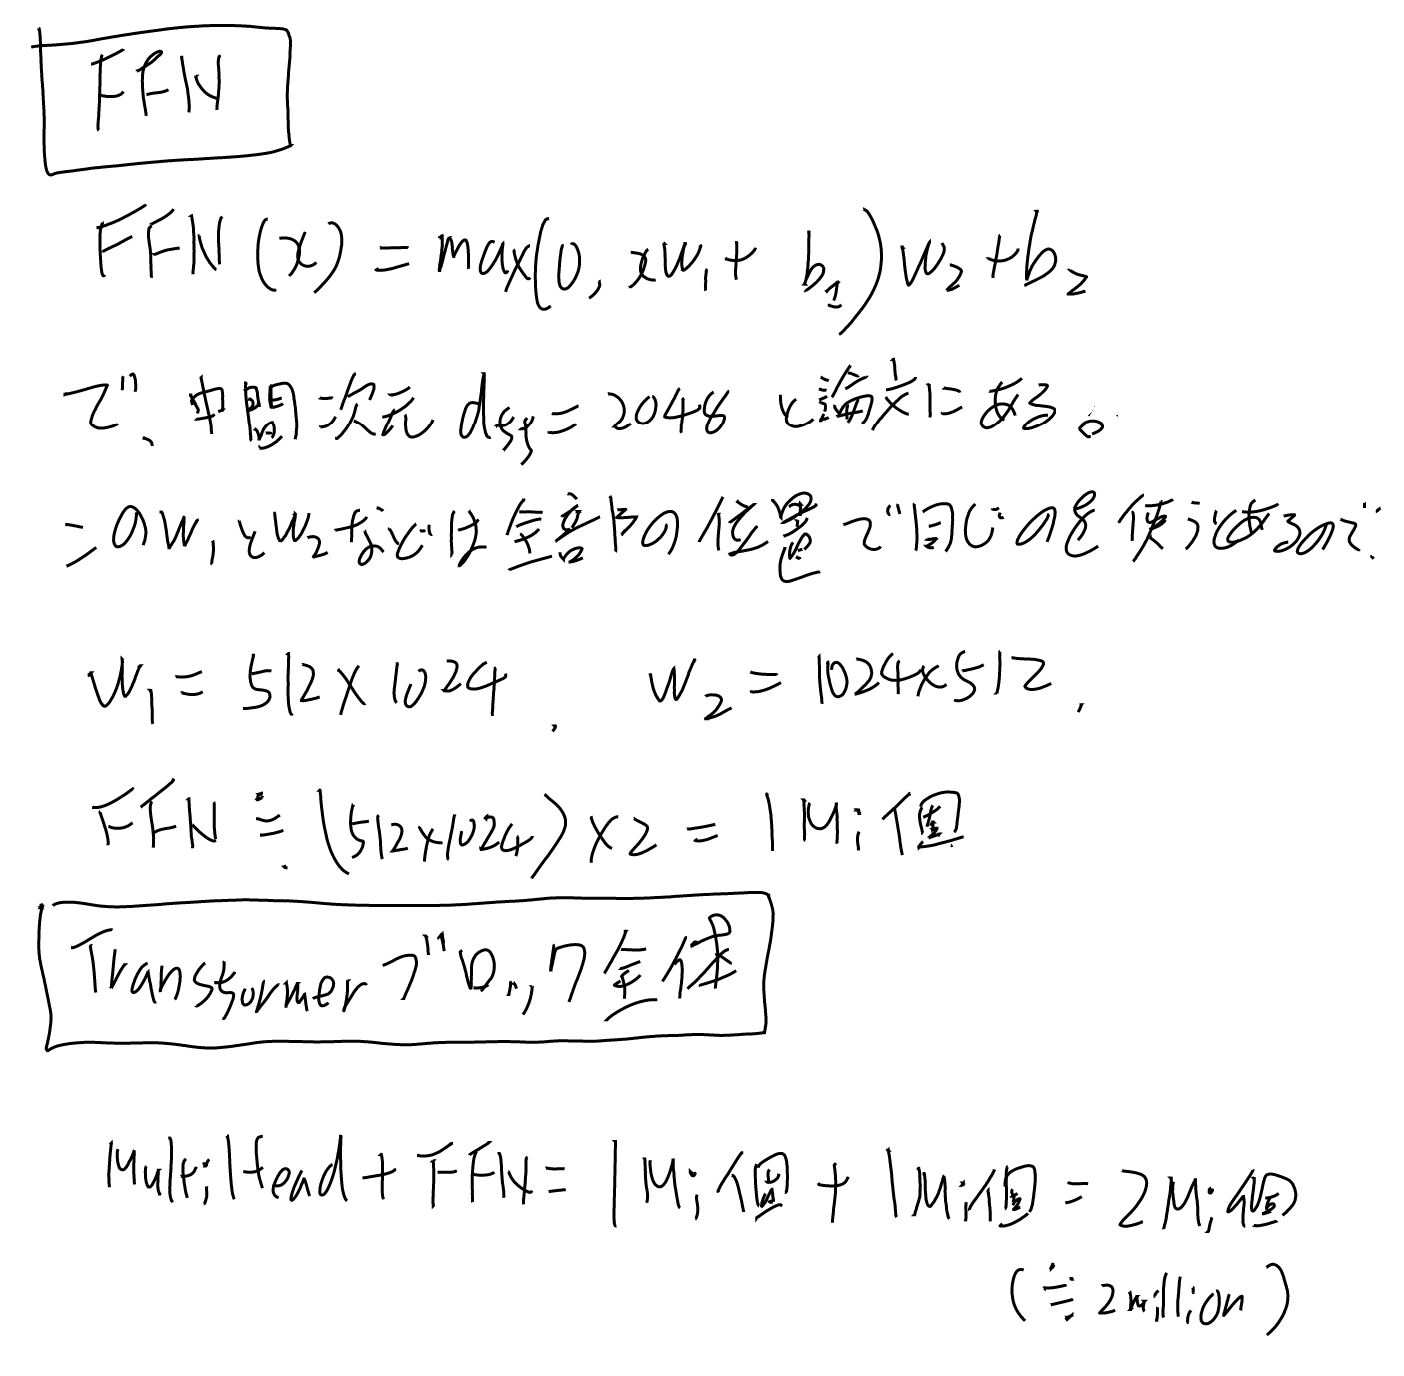 FFN
FFN(x) = max(0, xw₁ + b₁)w₂ + b₂
で、中間次元 dff = 2048 と論文にある。
このW₁とW₂などは全部の位置で同じのを使うとあるので.
W₁ = 512×1024. W₂ = 1024×512.
FFN ≒ (512×1024)×2 = 1Mi個
Transformerブロック全体
MultiHead + FFN = 1Mi個 + 1Mi個 = 2Mi個
(≒ 2million)